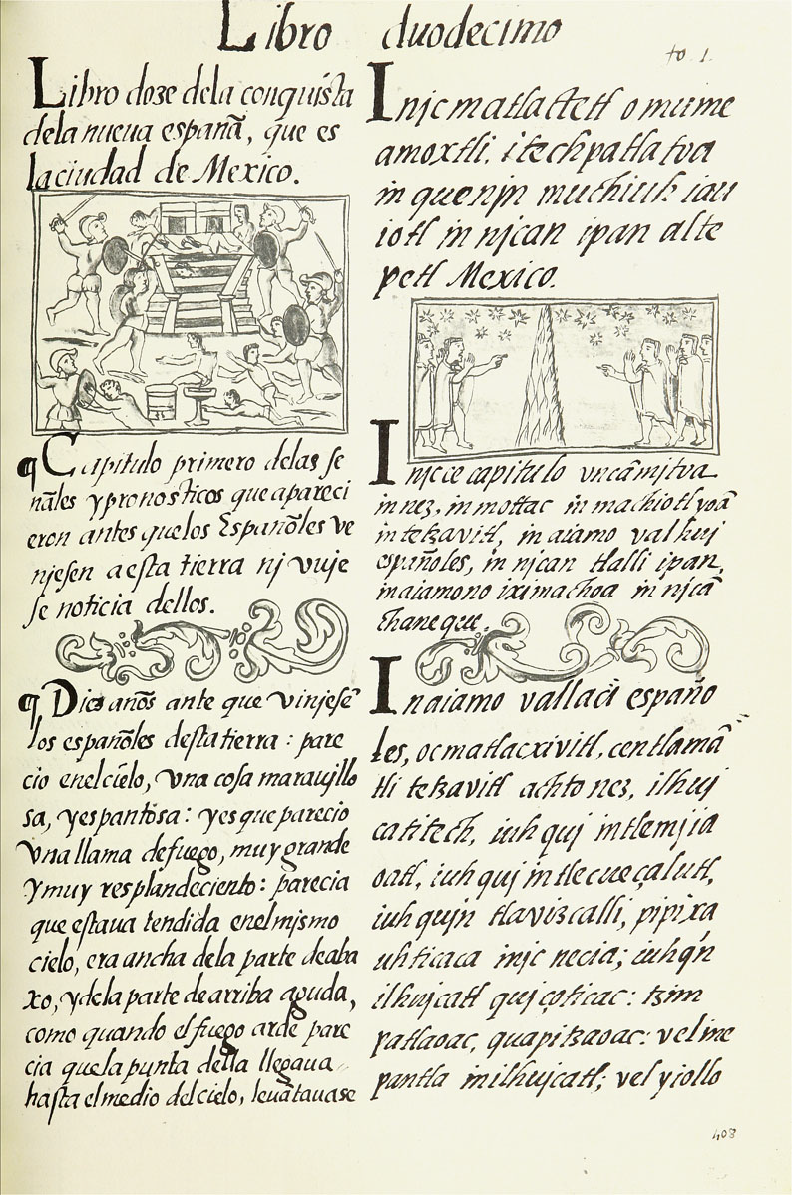 Libro duodecimo
fo. 1.
Libro doze dela conquista
dela nueua españa, que es
la ciudad de Mexico.
¶ Capitulo primero delas se
ñales y pronosticos que apareci
eron antes quelos Españoles ve
njesen a esta tierra nj vuje
se noticia dellos.
¶ Diez años ante que vinjesē
los españoles desta tierra: pare
cio enel cielo, vna cosa marauillo
sa, y espantosa: y es que parecio
vna llama de fuego, muy grande
y muy resplandeciente: parecia
que estaua tendida enel mismo
cielo, era ancha dela parte de aba
xo, y dela parte de arriba aguda,
como quando el fuego arde pare
cia quela punta della llegaua
hasta el medio del cielo, leuātauase
Injc matlactetl omume
amoxtli, itechpa tlatoa
in quenjn muchiuh iau
iotl in njcan ipan alte
petl Mexico.
Injc ce capitulo vncā mjtoa
in nez, in mottac in machiotl yoā
in tetzavitl, in aiamo valhuj
españoles, in njcan tlalli ipan,
in aiamono iximachoa in njcā
chaneque.
In aiamo vallaci españo
les, oc matlacxivitl, centlamā
tli tetzavitl achto nez, ilhuj
catitech, iuhqui in tlemjia
oatl, iuhquj in tlecueçalutl,
iuhqujn tlavizcalli, pipixa
uhticaca injc necia; iuhq̄n
ilhujcatl qujçoticac: tzim
patlaoac, quapitzaoac: vel ine
pantla in ilhujcatl; vel yiollo
408